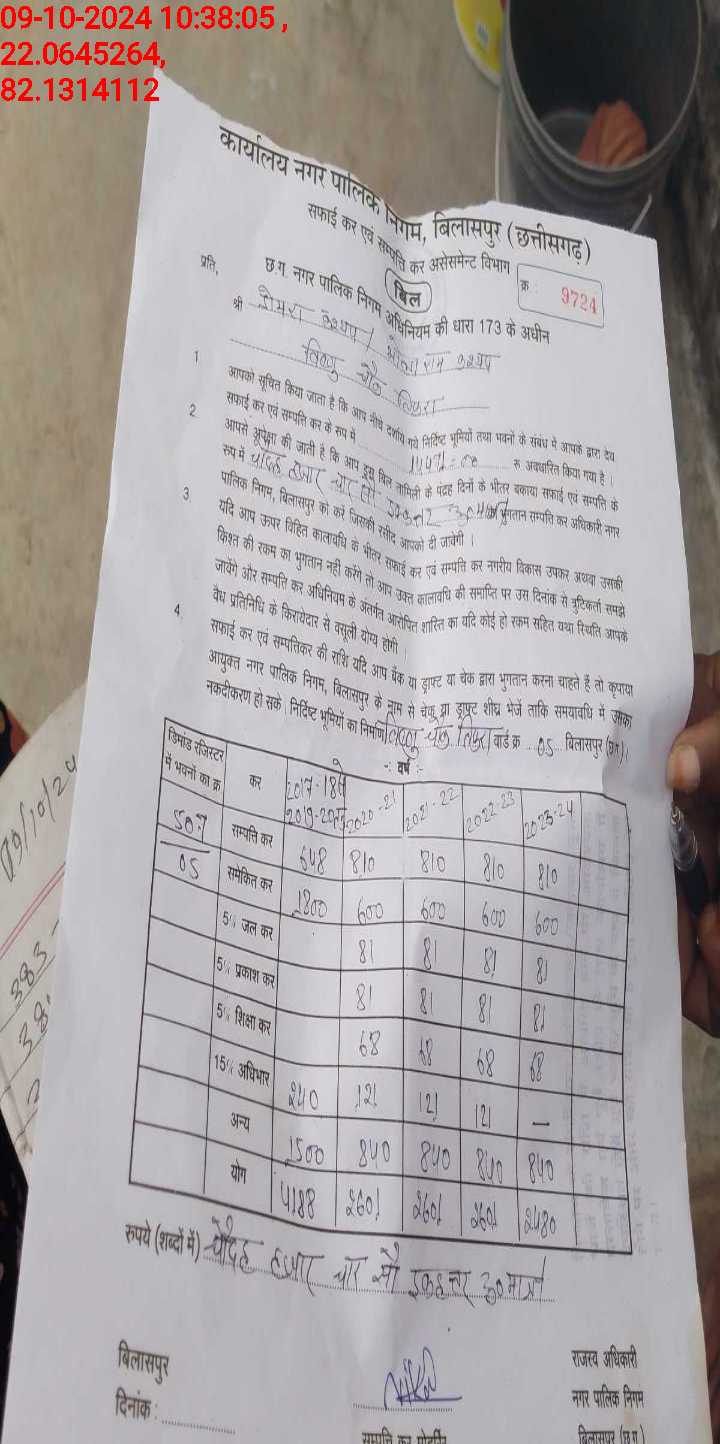 09-10-2024 10:38:05 ,
22.0645264,
82.1314112
कार्यालय नगर पालिक निगम, बिलासपुर (छत्तीसगढ़)
सफाई कर एवं सम्पत्ति कर असेसमेन्ट विभाग
बिल
क्र : 9724
छ.ग. नगर पालिक निगम अधिनियम की धारा 173 के अधीन
प्रति,
श्री
विष्णु चौक तिफरा
1 आपको सूचित किया जाता है कि आप नीचे दर्शाये गये निर्दिष्ट भूमियों तथा भवनों के संबंध मे आपके द्वारा देय
सफाई कर एवं सम्पति कर के रूप में 14471=00 रू अवधारित किया गया है ।
2 आपसे अपेक्षा की जाती है कि आप इस बिल तामिली के पंद्रह दिनों के भीतर बकाया सफाई एवं सम्पति के
रूप में चौदह हजार चार सौ इकहत्तर रू० मात्र भुगतान सम्पति कर अधिकारी नगर
पालिक निगम, बिलासपुर को करे जिसकी रसीद आपको दी जावेगी ।
3 यदि आप ऊपर विहित कालावधि के भीतर सफाई कर एवं सम्पति कर नगरीय विकास उपकर अथवा उसकी
किश्त की रकम का भुगतान नही करेंगे तो आप उक्त कालावधि की समाप्ति पर उस दिनांक से त्रुटिकर्ता समझे
जावेंगे और सम्पति कर अधिनियम के अंतर्गत आरोपित शास्ति का यदि कोई हो रकम सहित यथा स्थिति आपके
वैध प्रतिनिधि के किरायेदार से वसूली योग्य होगी ।
4. सफाई कर एवं सम्पत्तिकर की राशि यदि आप बैंक या ड्राफ्ट या चेक द्वारा भुगतान करना चाहते हैं तो कृपाया
आयुक्त नगर पालिक निगम, बिलासपुर के नाम से चेक या ड्राफ्ट शीघ्र भेजें ताकि समयावधि में
नकदीकरण हो सके निर्दिष्ट भूमियों का निर्माण विष्णु चौक तिफरा वार्ड क्र 05 बिलासपुर (छ.ग.)
-: वर्ष :-
डिमांड रजिस्टर में भवनों का क्र कर 2017-18 से 2019-20 2020-21 2021-22 2022-23 2023-24
507 सम्पत्ति कर 648 810 810 810 810
05 समेकित कर 1800 600 600 600 600
5% जल कर 81 81 81 81
5% प्रकाश कर 81 81 81 81
5% शिक्षा कर 68 68 68 68
15% अधिभार 240 121 121 121 —
अन्य 1500 840 840 840 840
योग 4188 2601 2601 2601 2480
रुपये (शब्दों में) चौदह हजार चार सौ इकहत्तर रू० मात्र
बिलासपुर
दिनांक :
राजस्व अधिकारी
नगर पालिक निगम
बिलासपुर (छ.ग.)
09/10/24
385
38